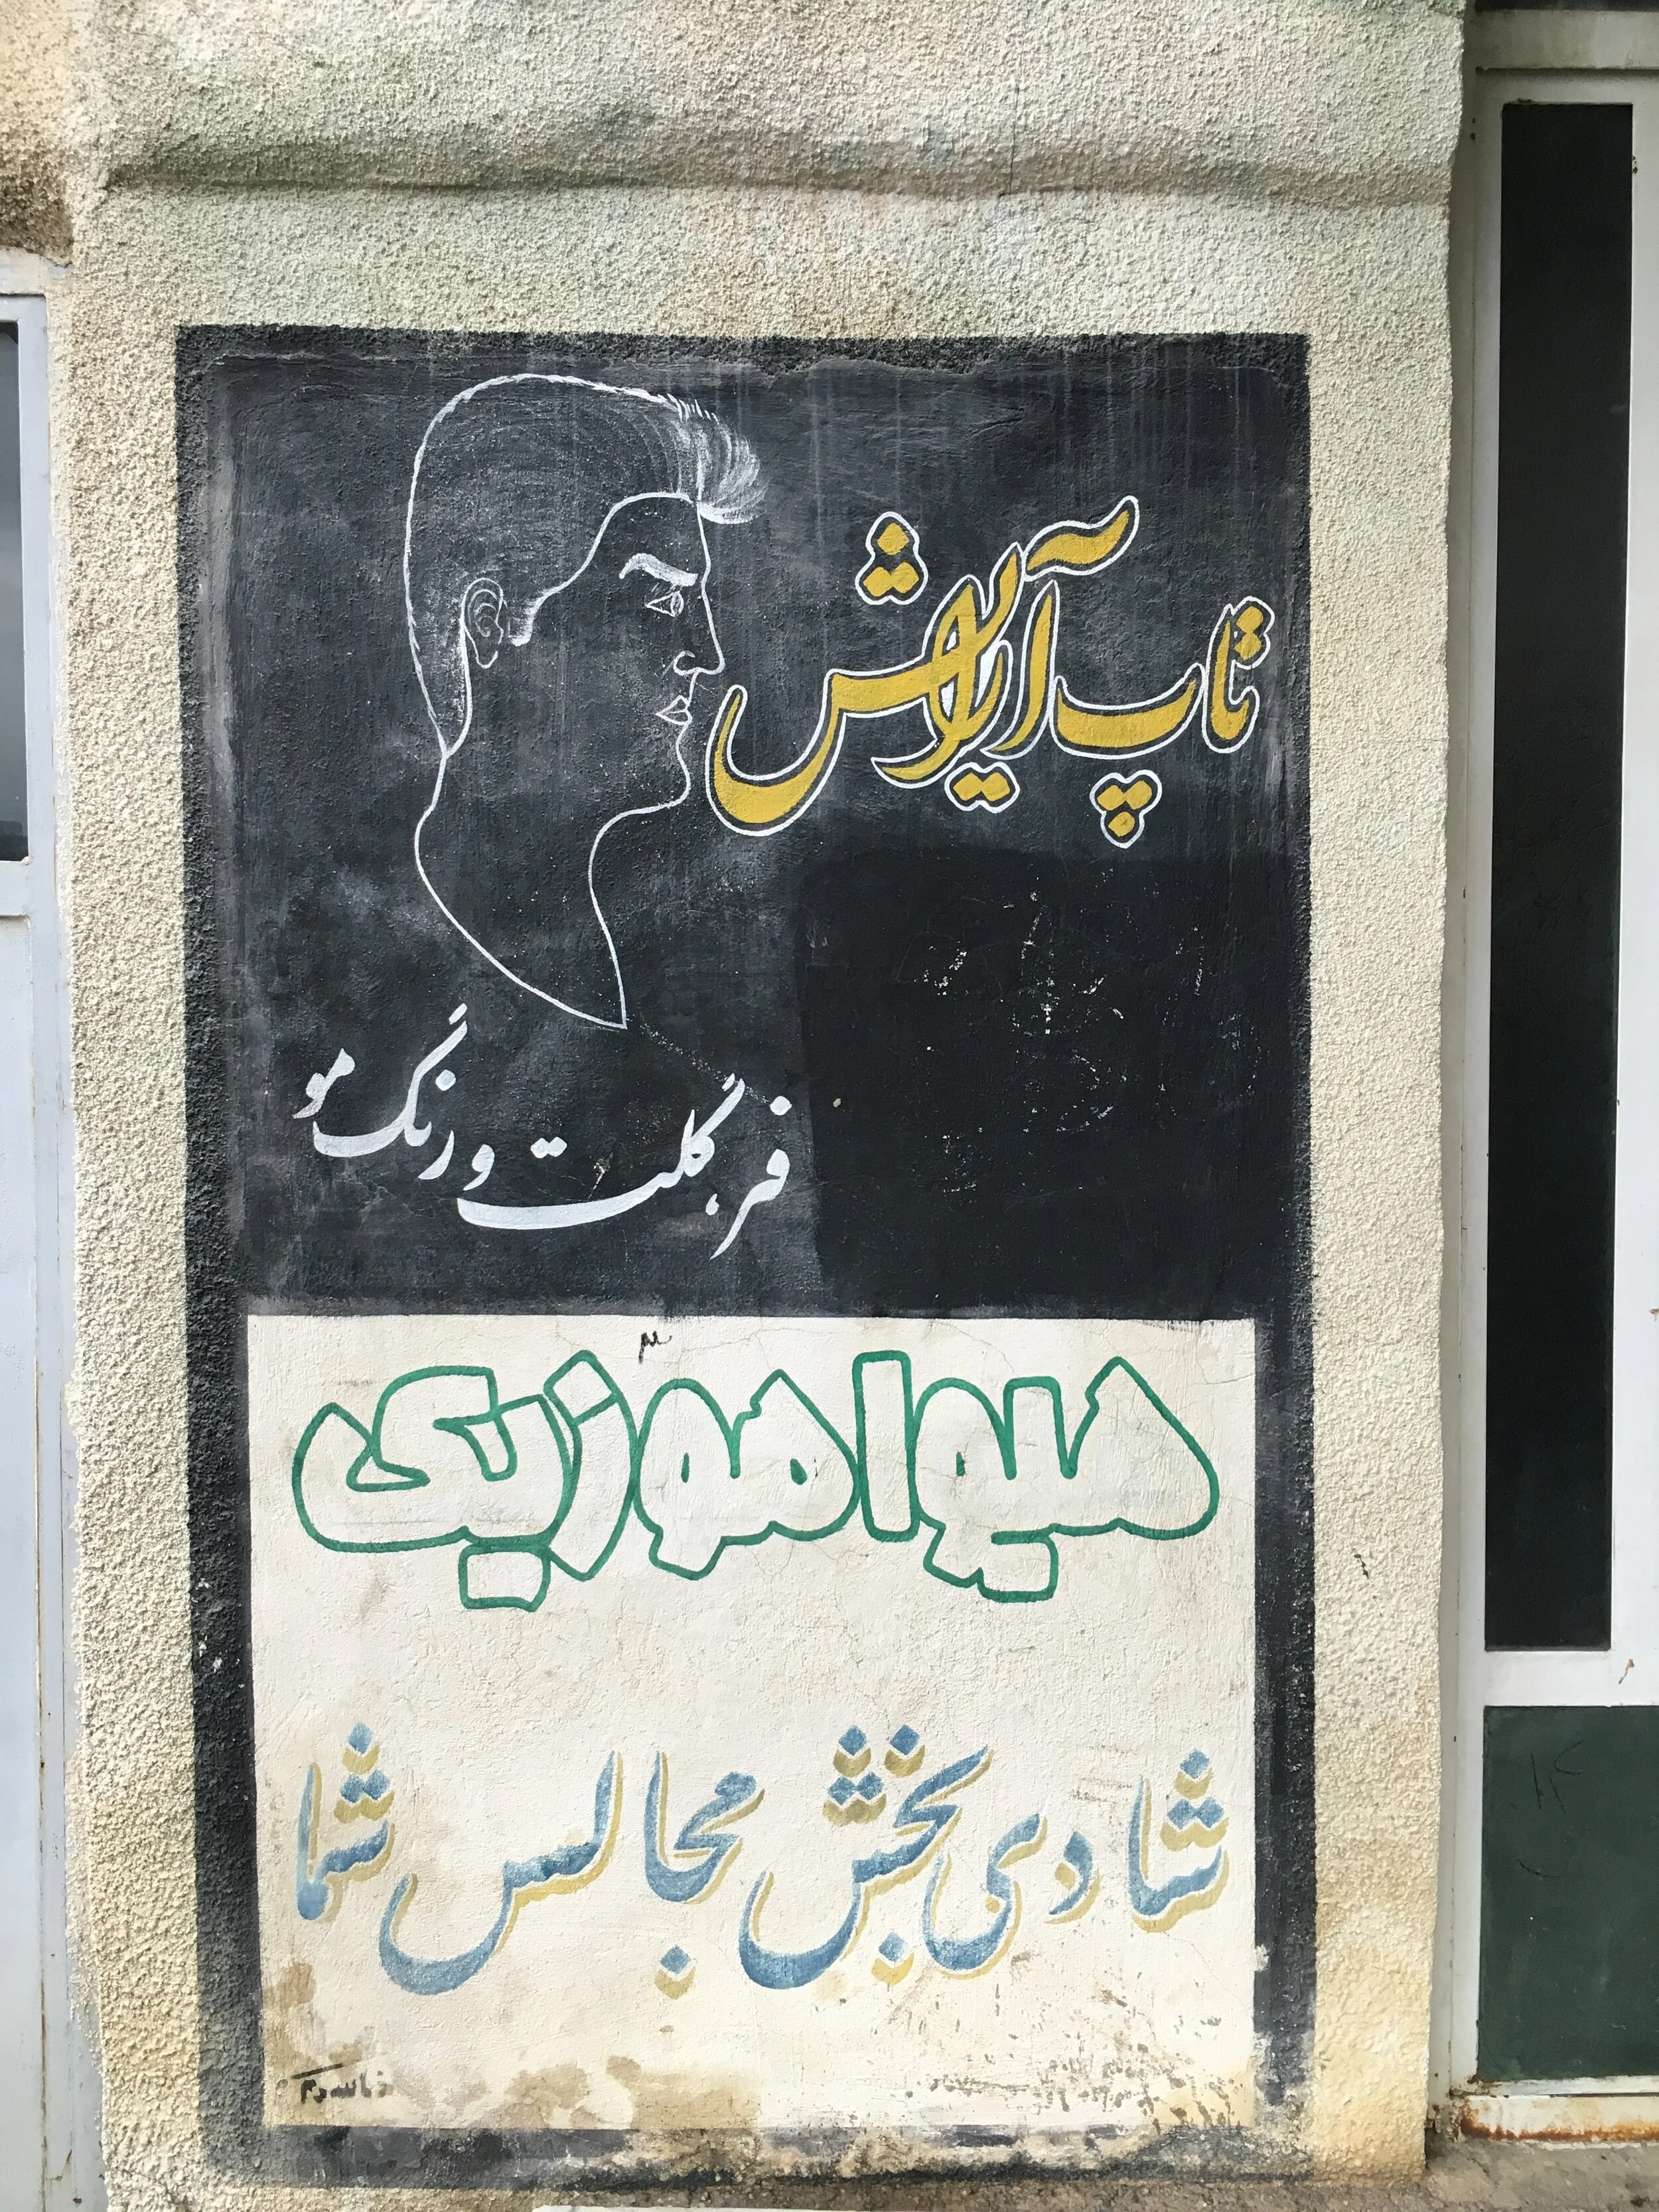 تاپ آرایش
فر، گلت و رنگ مو
هیوا موزیک
شادی بخش مجالس شما